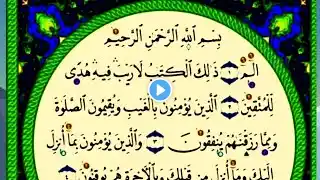 بِسْمِ ٱللَّهِ ٱلرَّحْمَٰنِ ٱلرَّحِيمِ
الٓمٓ ١ ذَٰلِكَ ٱلْكِتَٰبُ لَا رَيْبَ فِيهِ هُدًى
لِّلْمُتَّقِينَ ٢ ٱلَّذِينَ يُؤْمِنُونَ بِٱلْغَيْبِ وَيُقِيمُونَ ٱلصَّلَوٰةَ
وَمِمَّا رَزَقْنَٰهُمْ يُنفِقُونَ ٣ وَٱلَّذِينَ يُؤْمِنُونَ بِمَآ أُنزِلَ
إِلَيْكَ وَمَآ أُنزِلَ مِن قَبْلِكَ وَبِٱلْءَاخِرَةِ هُمْ يُوقِنُونَ ٤